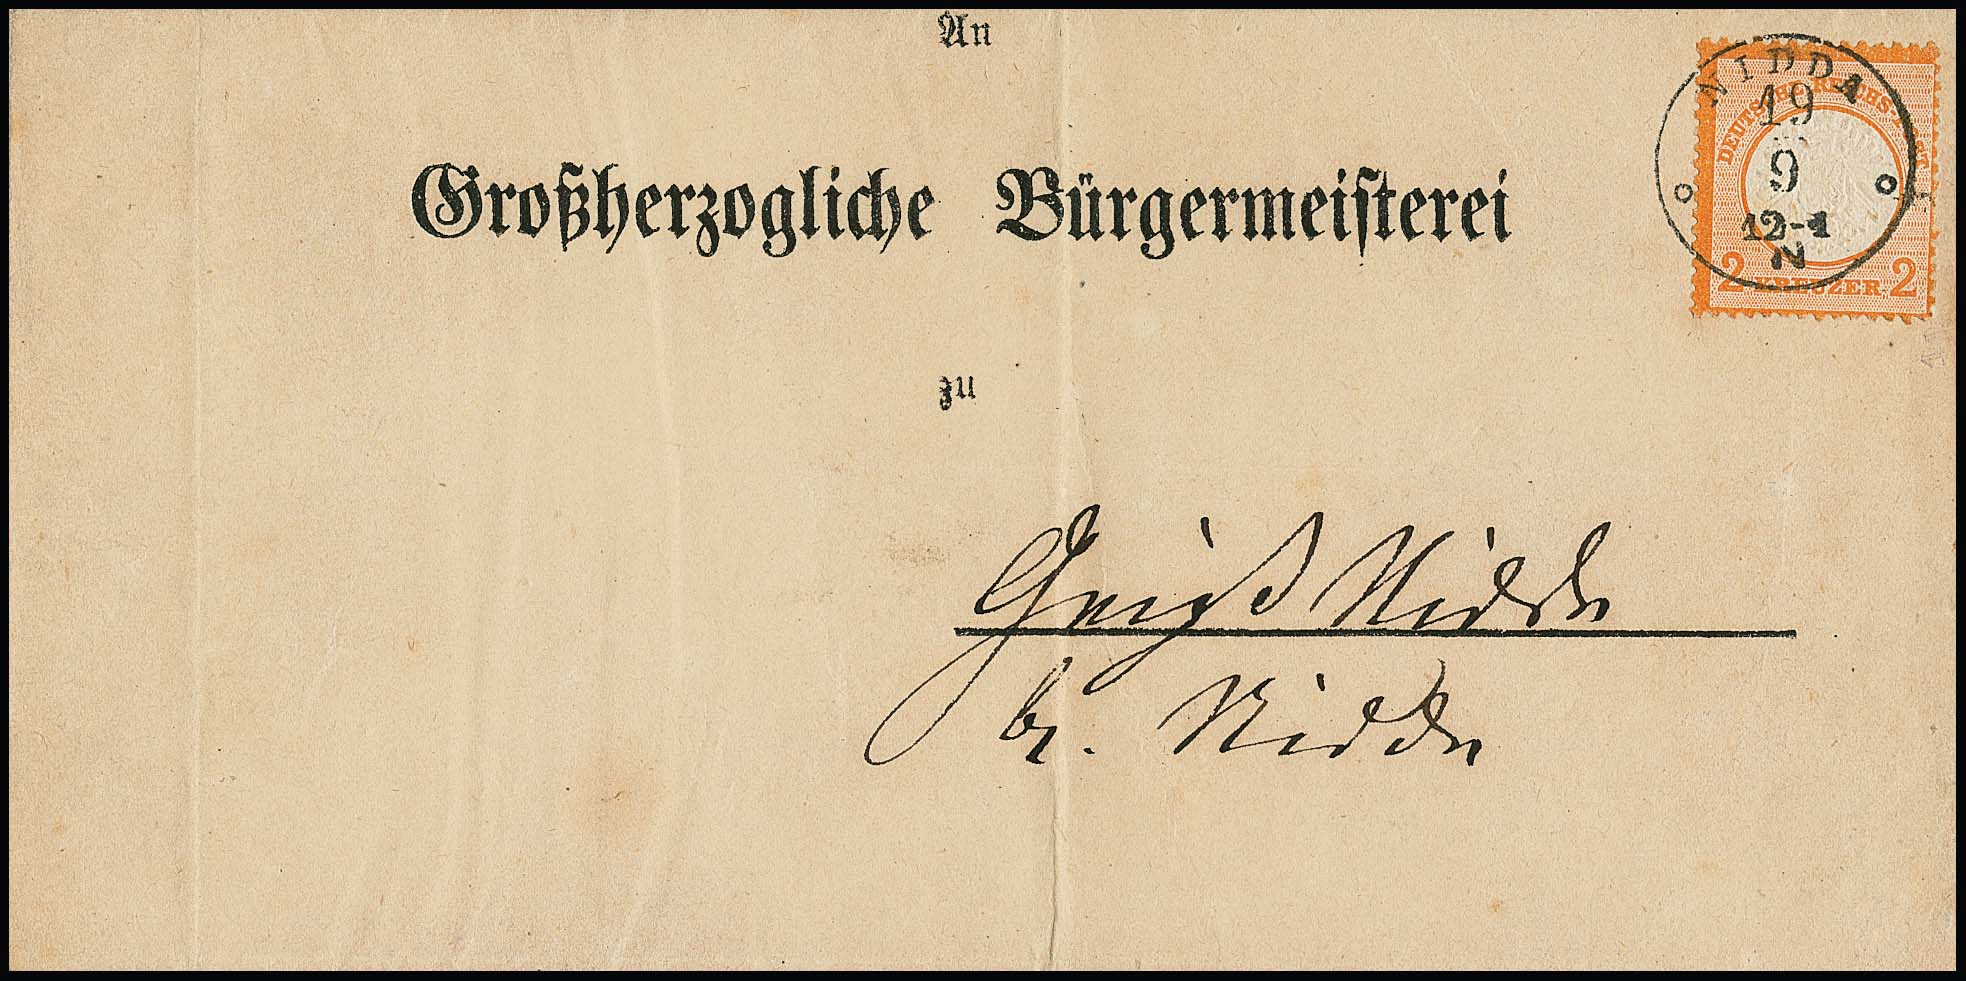 An
NIDDA
19
9
12-1
N
DEUTSCHE REICHS-POST
2 KREUZER 2
Großherzogliche Bürgermeisterei
zu
Geiß Nidda
b/. Nidda